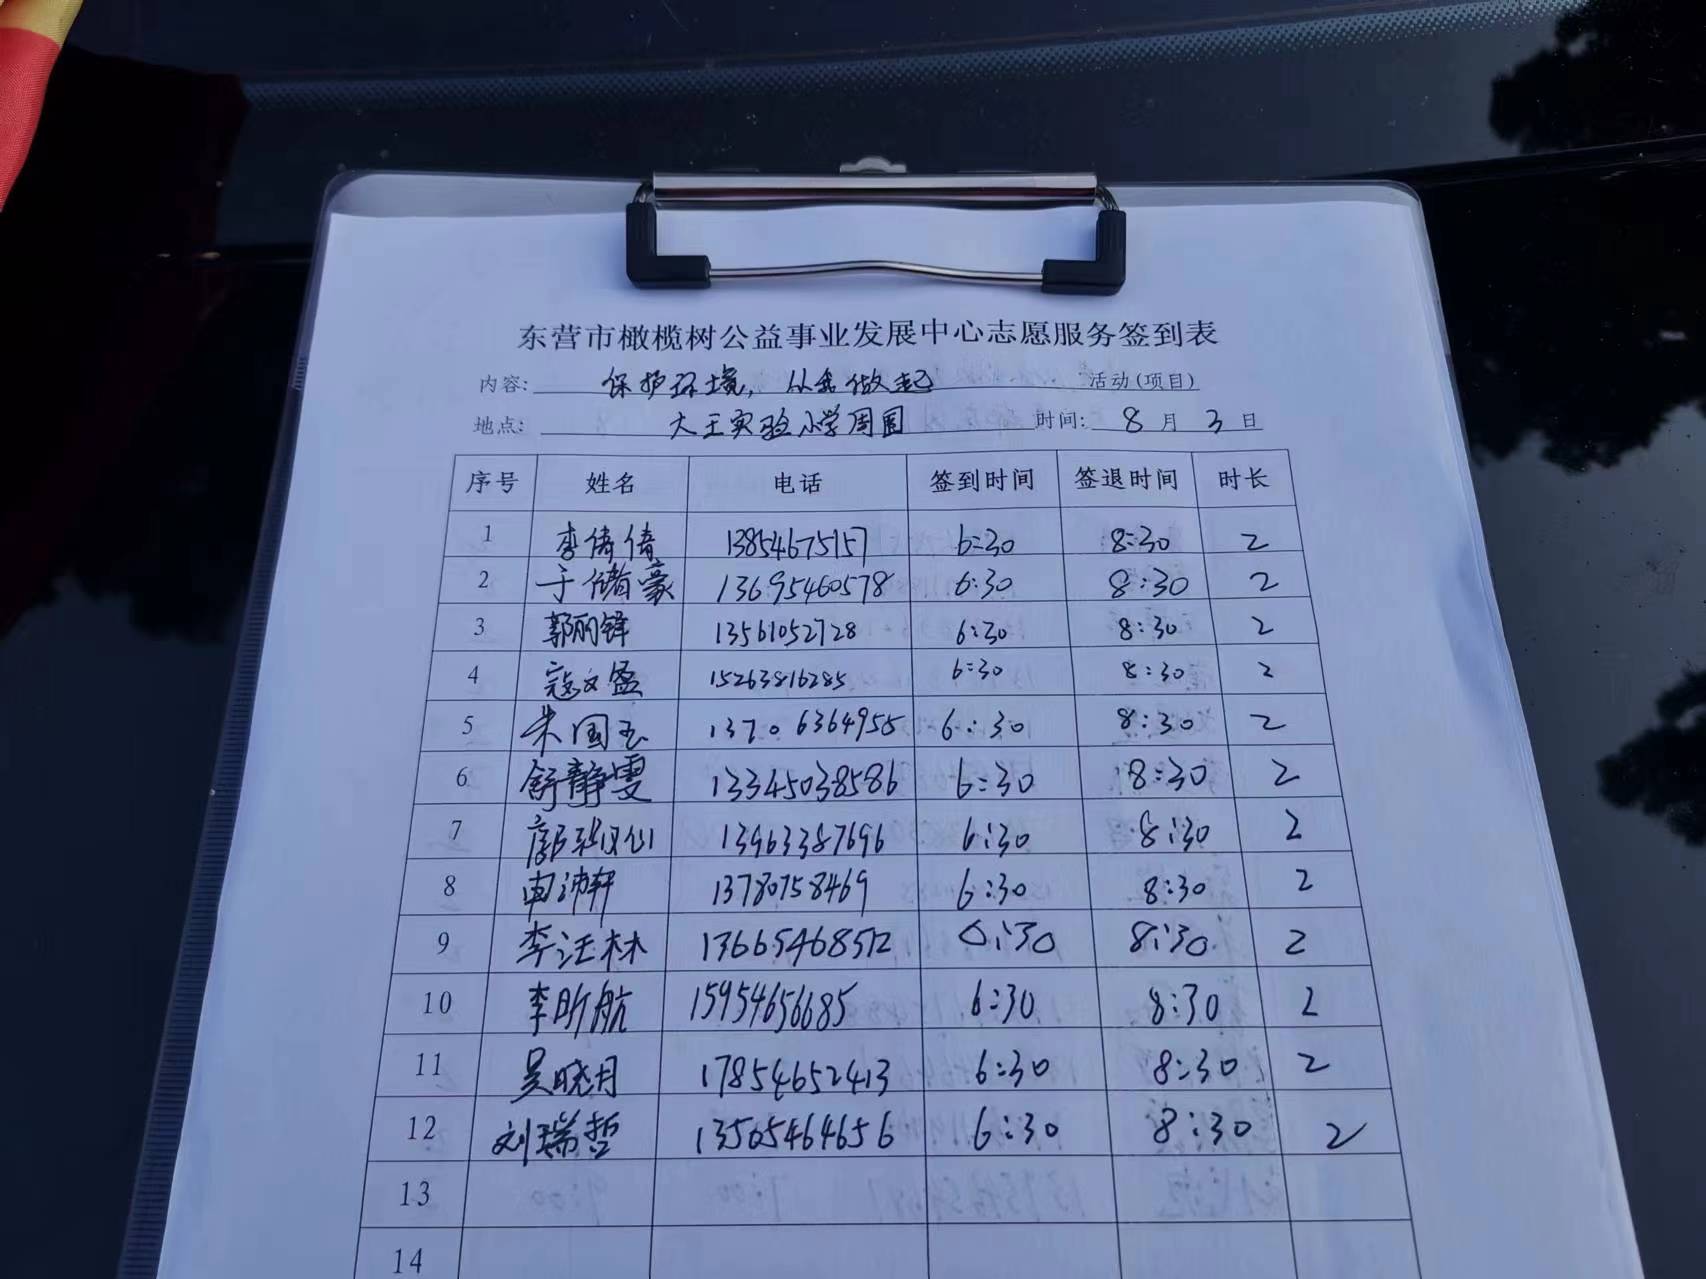 东营市橄榄树公益事业发展中心志愿服务签到表
内容: 保护环境，从我做起 活动(项目)
地点: 大王实验小学周围 时间: 8 月 3 日
序号 姓名 电话 签到时间 签退时间 时长
1 李倩倩 13854675157 6:30 8:30 2
2 于储豪 13695460578 6:30 8:30 2
3 郭丽铎 13561052728 6:30 8:30 2
4 寇文盈 15263816285 6:30 8:30 2
5 朱国玉 13706364955 6:30 8:30 2
6 舒静雯 13345038586 6:30 8:30 2
7 13963387696 6:30 8:30 2
8 13780758469 6:30 8:30 2
9 李汪林 13665468512 6:30 8:30 2
10 李昕航 15954656685 6:30 8:30 2
11 吴晓月 17854652413 6:30 8:30 2
12 刘瑞哲 13505464656 6:30 8:30 2
13
14